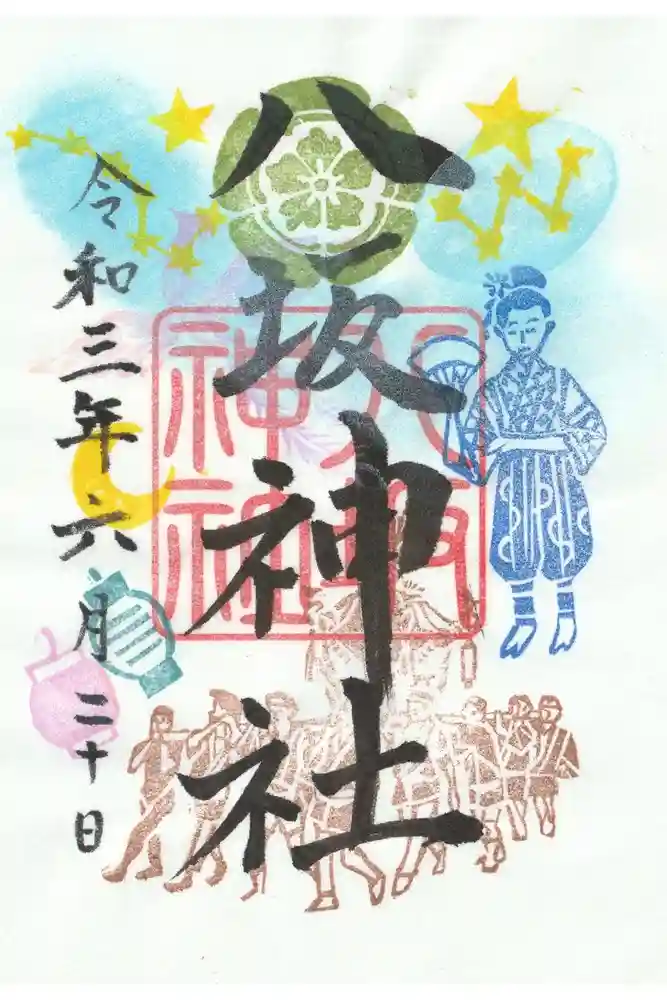 八坂神社
八坂神社
令和三年六月二十日